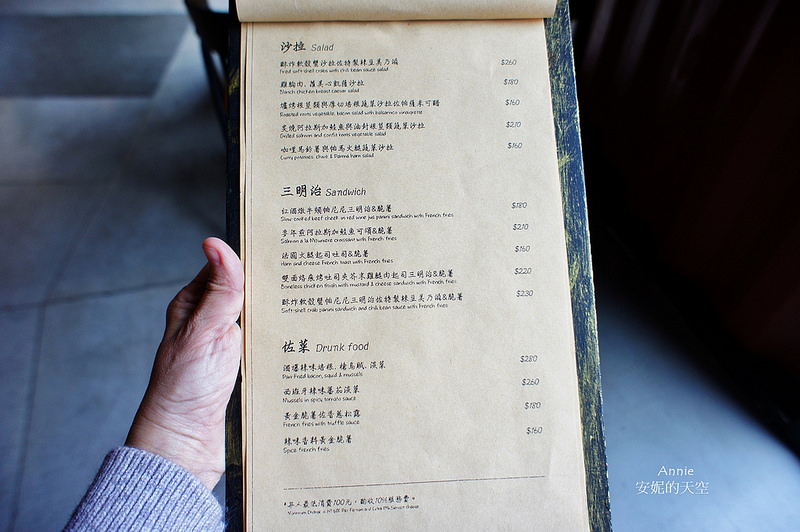 沙拉 Salad
酥炸軟殼蟹沙拉佐特製辣豆美乃滋 $260
Fried soft-shell crabs with chili bean sauce salad
雞胸肉. 蘿美心凱薩沙拉 $180
Blanch chicken breast caesar salad
爐烤根莖類與厚切培根蔬菜沙拉佐帕薩米可醋 $160
Roasted roots vegetable, bacon salad with balsamico vinaigrette
炙燒阿拉斯加鮭魚與油封根莖類蔬菜沙拉 $210
Grilled salmon and confit roots vegetable salad
咖哩馬鈴薯與帕馬火腿蔬菜沙拉 $160
Curry potatoes, chive & Parma ham salad
三明治 Sandwich
紅酒燉牛頰帕尼尼三明治&脆薯 $180
Slow-cooked beef cheek in red wine jus panini sandwich with French fries
麥年煎阿拉斯加鮭魚可頌&脆薯 $210
Salmon a la Meuniere croissant with French fries
法國火腿起司吐司&脆薯 $160
Ham and cheese French toast with French fries
雙面烙痕烤吐司夾芥末雞腿肉起司三明治&脆薯 $220
Boneless chicken thigh with mustard & cheese sandwich with French fries
酥炸軟殼蟹帕尼尼三明治佐特製辣豆美乃滋&脆薯 $230
Soft-shell crab panini sandwich and chili bean sauce with French fries
佐菜 Drunk food
酒爆辣味培根. 槍烏賊. 淡菜 $280
Pan-Fried bacon, squid & mussels
西班牙辣味蕃茄淡菜 $260
Mussels in spicy tomato sauce
黃金脆薯佐香蔥松露 $180
French fries with truffle sauce
辣味香料黃金脆薯 $160
Spice french fries
*每人最低消費100元，酌收10%服務費。
Minimum Charge is NT 100 Per Person and Extra 10% Service Charge
Annie
安妮的天空